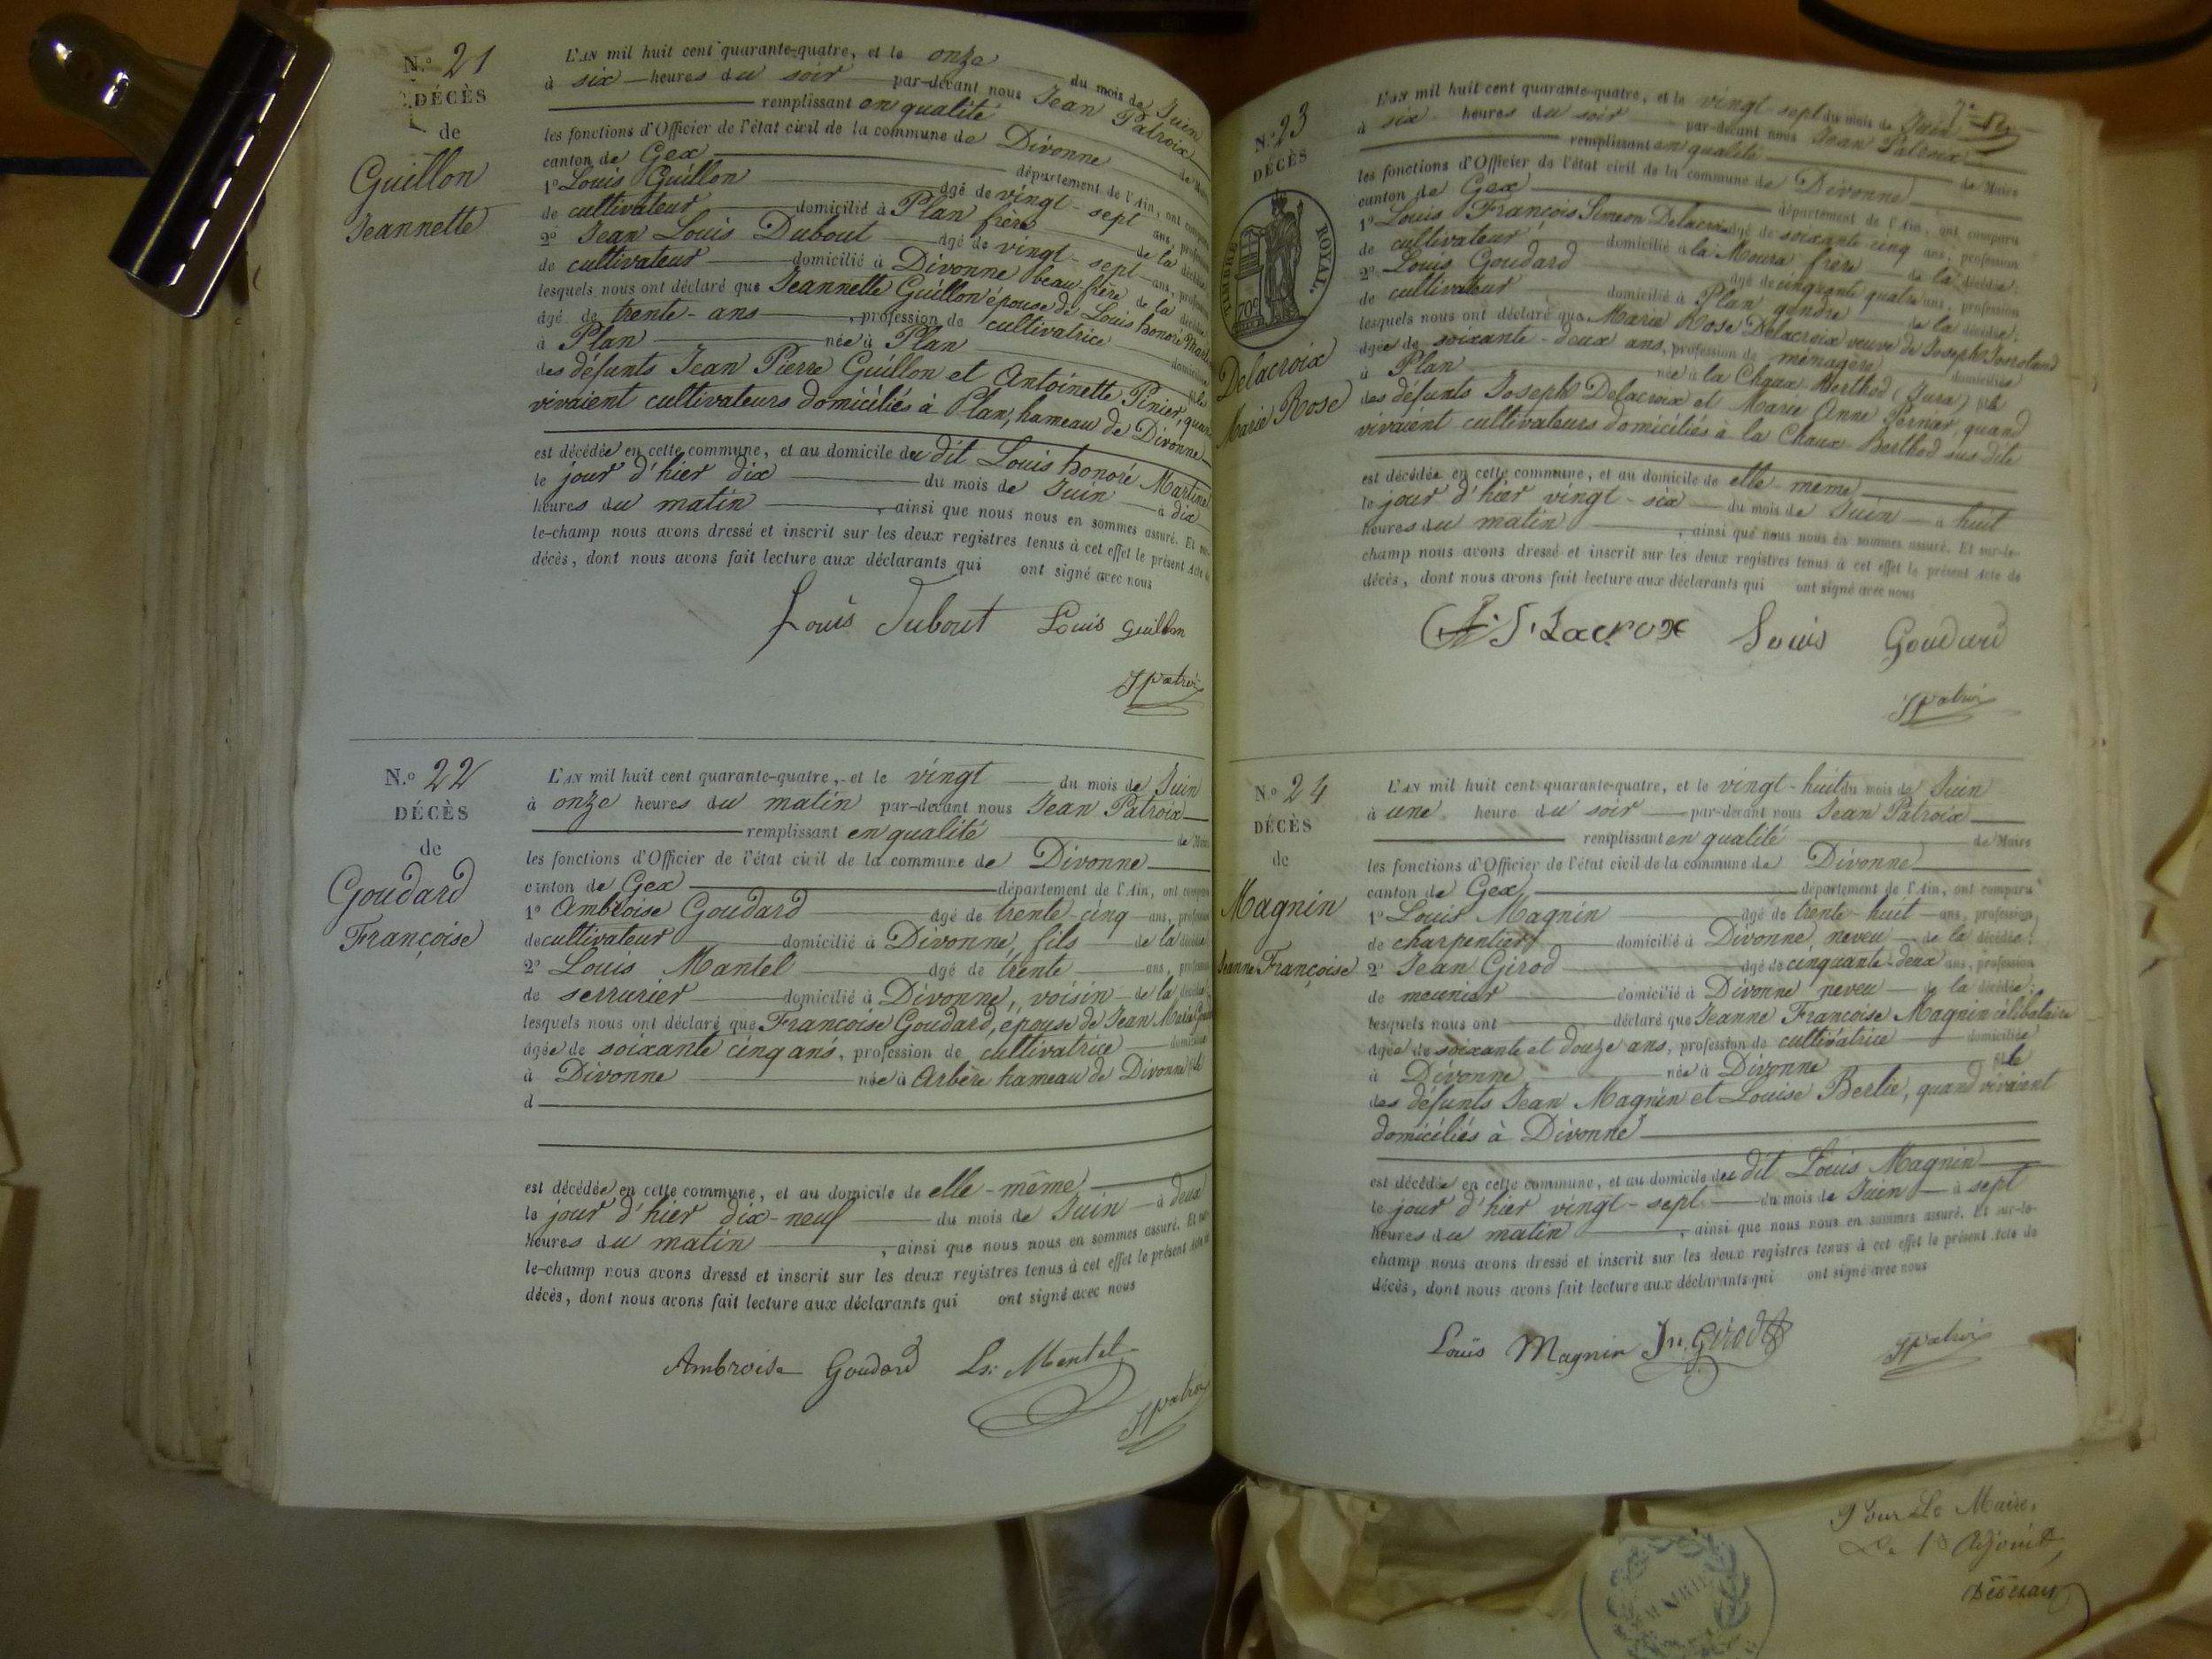 N.o 21
DÉCÈS
de
Guillon
Jeannette
L'AN mil huit cent quarante-quatre, et le onze du mois de Juin
à six heures du soir par-devant nous Jean Patroix
remplissant en qualité de Maire
les fonctions d'Officier de l'état civil de la commune de Divonne
canton de Gex département de l'Ain, ont comparu
1o Louis Guillon âgé de vingt-sept ans, profession
de cultivateur domicilié à Plan frère de la décédée
2o Jean Louis Dubout âgé de vingt-sept ans, profession
de cultivateur domicilié à Divonne beau-frère de la décédée
lesquels nous ont déclaré que Jeannette Guillon épouse de Louis honoré Martin
âgé de trente-ans, profession de cultivatrice domiciliée
à Plan née à Plan fille
des défunts Jean Pierre Guillon et Antoinette Pinier, quand
vivaient cultivateurs domiciliés à Plan, hameau de Divonne
est décédée en cette commune, et au domicile du dit Louis honoré Martin
le jour d'hier dix du mois de Juin à dix
heures du matin, ainsi que nous nous en sommes assuré. Et sur-
le-champ nous avons dressé et inscrit sur les deux registres tenus à cet effet le présent acte de
décès, dont nous avons fait lecture aux déclarants qui ont signé avec nous
Louis Dubout Louis Guillon
JPatroix
N.o 22
DÉCÈS
de
Goudard
Françoise
L'AN mil huit cent quarante-quatre, et le vingt du mois de Juin
à onze heures du matin par-devant nous Jean Patroix
remplissant en qualité de Maire
les fonctions d'Officier de l'état civil de la commune de Divonne
canton de Gex département de l'Ain, ont comparu
1o Ambroise Goudard âgé de trente-cinq ans, profession
de cultivateur domicilié à Divonne, fils de la décédée
2o Louis Mantel âgé de trente ans, profession
de serrurier domicilié à Divonne, voisin de la décédée
lesquels nous ont déclaré que Françoise Goudard, épouse de Jean Marie
âgée de soixante cinq ans, profession de cultivatrice domiciliée
à Divonne née à Arbère hameau de Divonne fille
d
est décédée en cette commune, et au domicile de elle-même
le jour d'hier dix-neuf du mois de Juin à deux
heures du matin, ainsi que nous nous en sommes assuré. Et sur-
le-champ nous avons dressé et inscrit sur les deux registres tenus à cet effet le présent Acte de
décès, dont nous avons fait lecture aux déclarants qui ont signé avec nous
Ambroise Goudard Ls: Mantel
JPatroix
N.o 23
DÉCÈS
TIMBRE ROYAL.
70c
Delacroix
Marie Rose
L'AN mil huit cent quarante-quatre, et le vingt-sept du mois de Juin
à six heures du soir par-devant nous Jean Patroix
remplissant en qualité de Maire
les fonctions d'Officier de l'état civil de la commune de Divonne
canton de Gex département de l'Ain, ont comparu
1o Louis François Simeon Delacroix âgé de soixante cinq ans, profession
de cultivateur domicilié à la Moura frère de la décédée
2o Louis Goudard âgé de cinquante quatre ans, profession
de cultivateur domicilié à Plan gendre de la décédée
lesquels nous ont déclaré que Marie Rose Delacroix veuve de Joseph
âgée de soixante-deux ans, profession de ménagère domiciliée
à Plan née à la Chaux Berthod (Jura) fille
des défunts Joseph Delacroix et Marie Anne Pernier, quand
vivaient cultivateurs domiciliés à la Chaux-Berthod sus dite
est décédée en cette commune, et au domicile de elle-même
le jour d'hier vingt-six du mois de Juin à huit
heures du matin, ainsi que nous nous en sommes assuré. Et sur-le-
champ nous avons dressé et inscrit sur les deux registres tenus à cet effet le présent Acte de
décès, dont nous avons fait lecture aux déclarants qui ont signé avec nous
Lacroix Louis Goudard
JPatroix
N.o 24
DÉCÈS
de
Magnin
Jeanne Françoise
L'AN mil huit cent quarante-quatre, et le vingt-huit du mois de Juin
à une heure du soir par-devant nous Jean Patroix
remplissant en qualité de Maire
les fonctions d'Officier de l'état civil de la commune de Divonne
canton de Gex département de l'Ain, ont comparu
1o Louis Magnin âgé de trente-huit ans, profession
de charpentier domicilié à Divonne, neveu de la décédée
2o Jean Girod âgé de cinquante-deux ans, profession
de meunier domicilié à Divonne neveu de la décédée
lesquels nous ont déclaré que Jeanne Françoise Magnin célibataire
âgée de soixante et douze ans, profession de cultivatrice domiciliée
à Divonne née à Divonne fille
des défunts Jean Magnin et Louise Bertie, quand vivaient
domiciliés à Divonne
est décédée en cette commune, et au domicile du dit Louis Magnin
le jour d'hier vingt-sept du mois de Juin à sept
heures du matin, ainsi que nous nous en sommes assuré. Et sur-le-
champ nous avons dressé et inscrit sur les deux registres tenus à cet effet le présent Acte de
décès, dont nous avons fait lecture aux déclarants qui ont signé avec nous
Louis Magnin Jn. Girod
JPatroix
Pour Le Maire,
Le 1er Adjoint
MAIRIE